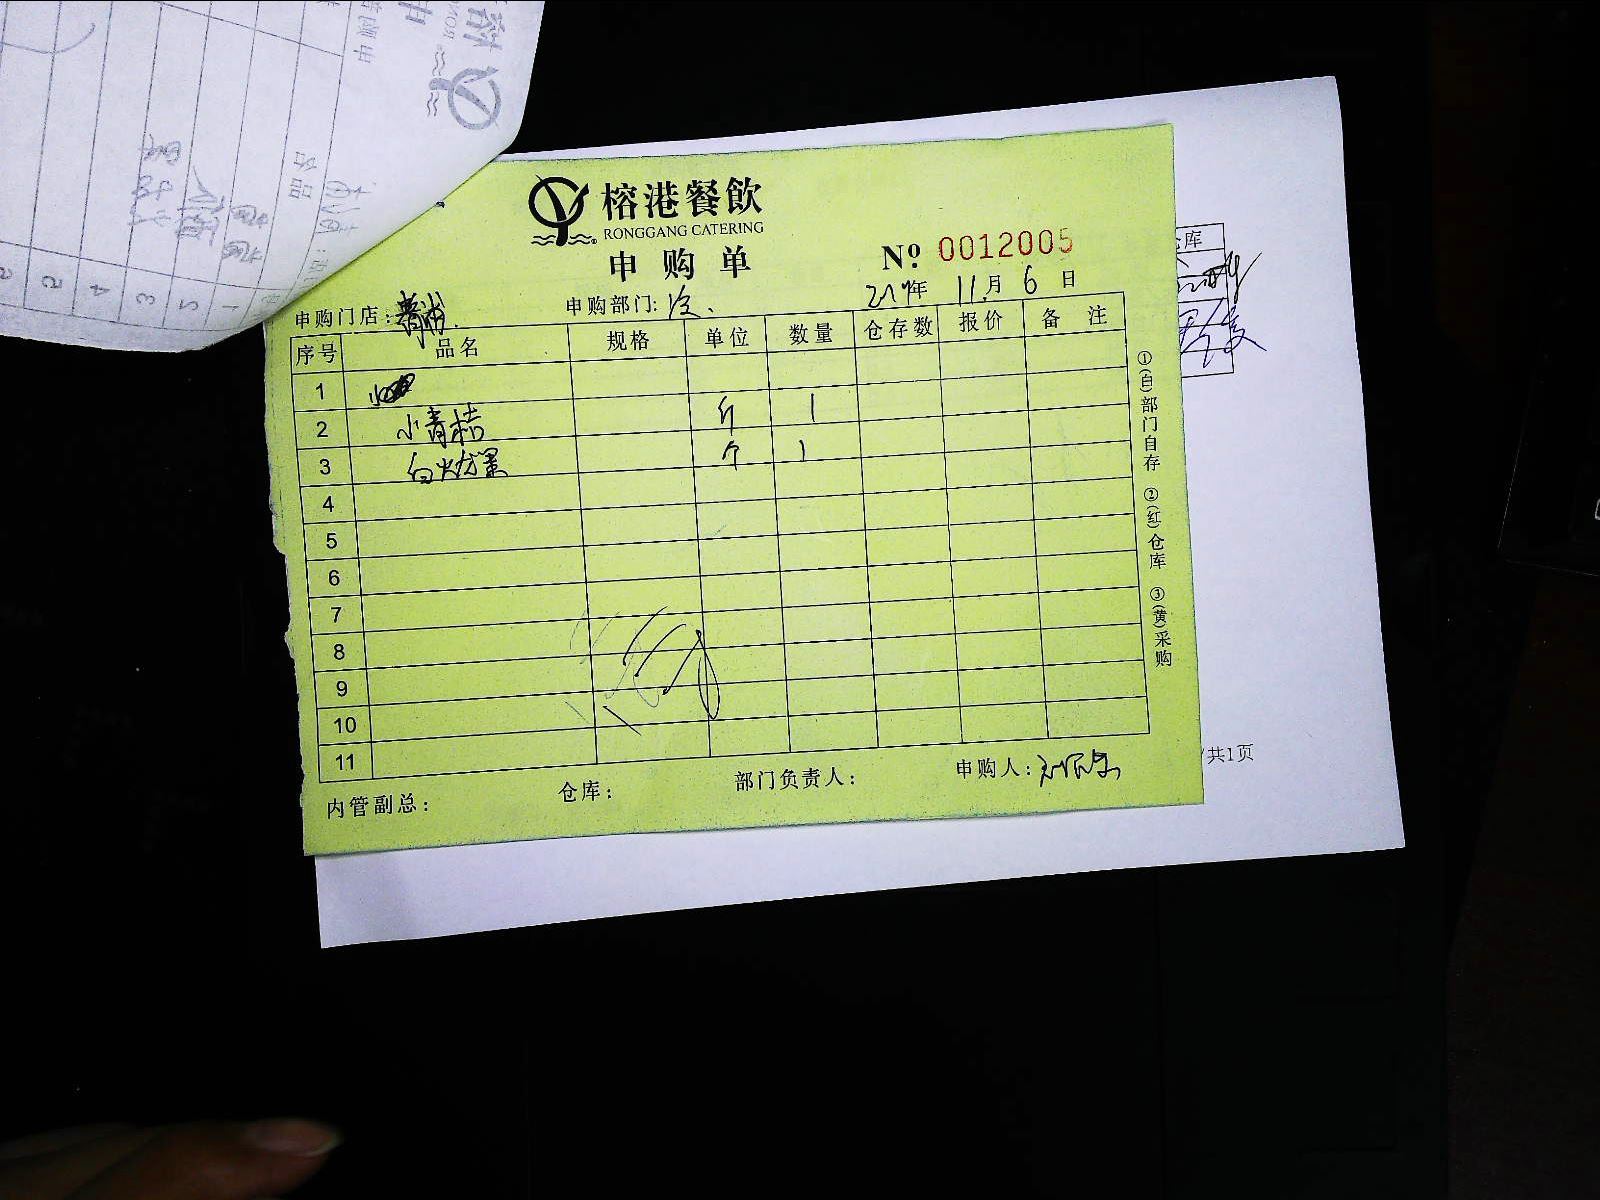 榕港餐飲
RONGGANG CATERING
申购单
№ 0012005
申购门店: 青浦
申购部门:
年 11月 6日
序号 品名 规格 单位 数量 仓存数 报价 备注
1
2 小青桔 斤 1
3 白火龙果 个 1
4
5
6
7
8
9
10
11
内管副总: 仓库: 部门负责人: 申购人:
①(白)部门自存 ②(红)仓库 ③(黄)采购
库
共1页